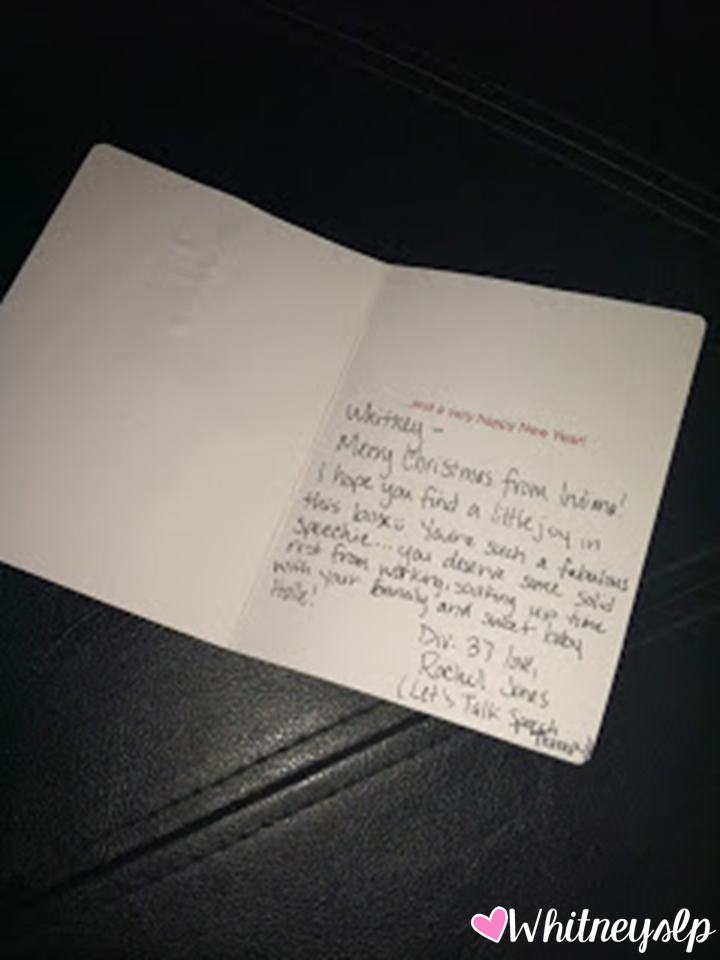 ...and a very happy New Year!
Whitney -
Merry Christmas from Indiana!
I hope you find a little joy in
this box. You're such a fabulous
speechie... you deserve some solid
rest from working, soaking up time
with your family and sweet baby
Div. 37 love,
Rachel Jones
(Let's Talk Speech
Whitneyslp